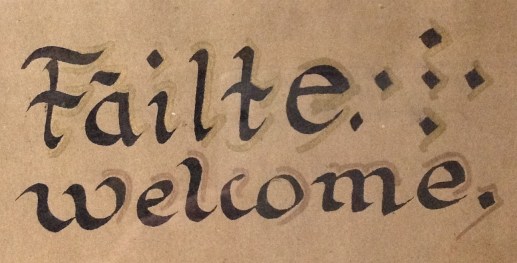 Fáilte.
welcome.